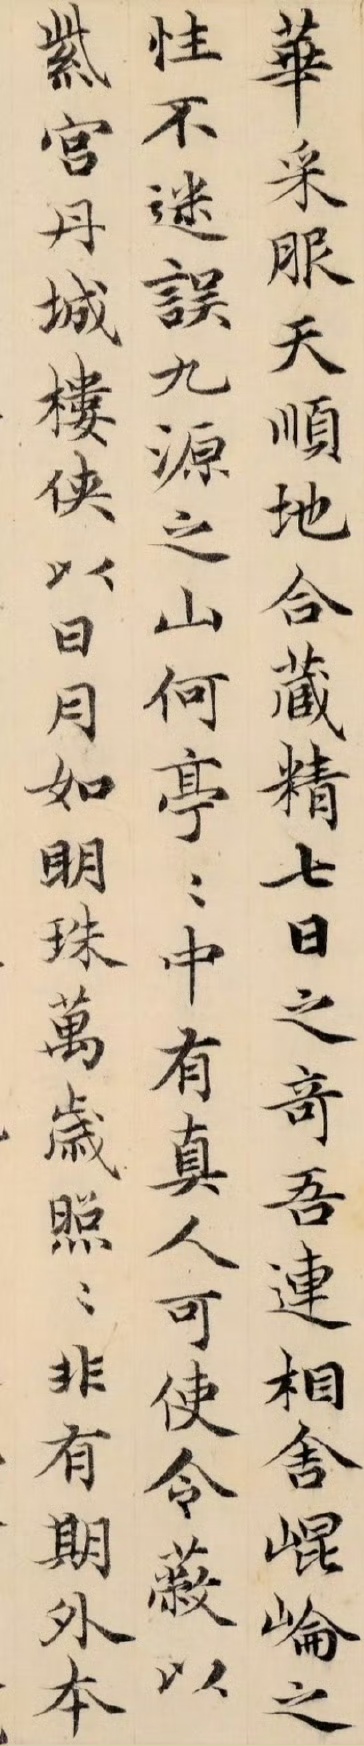 華采服天順地合藏精七日之奇吾連相舎崐崘之
性不迷誤九源之山何亭〻中有真人可使令蔽以
紫宮丹城樓俠以日月如明珠萬歳照〻非有期外本